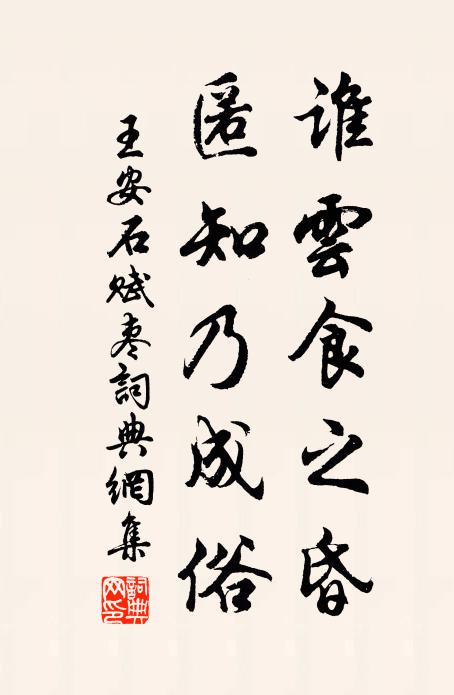 誰雲食之昏
匿知乃成俗
王安石賦枣詞典網集
詞典網印